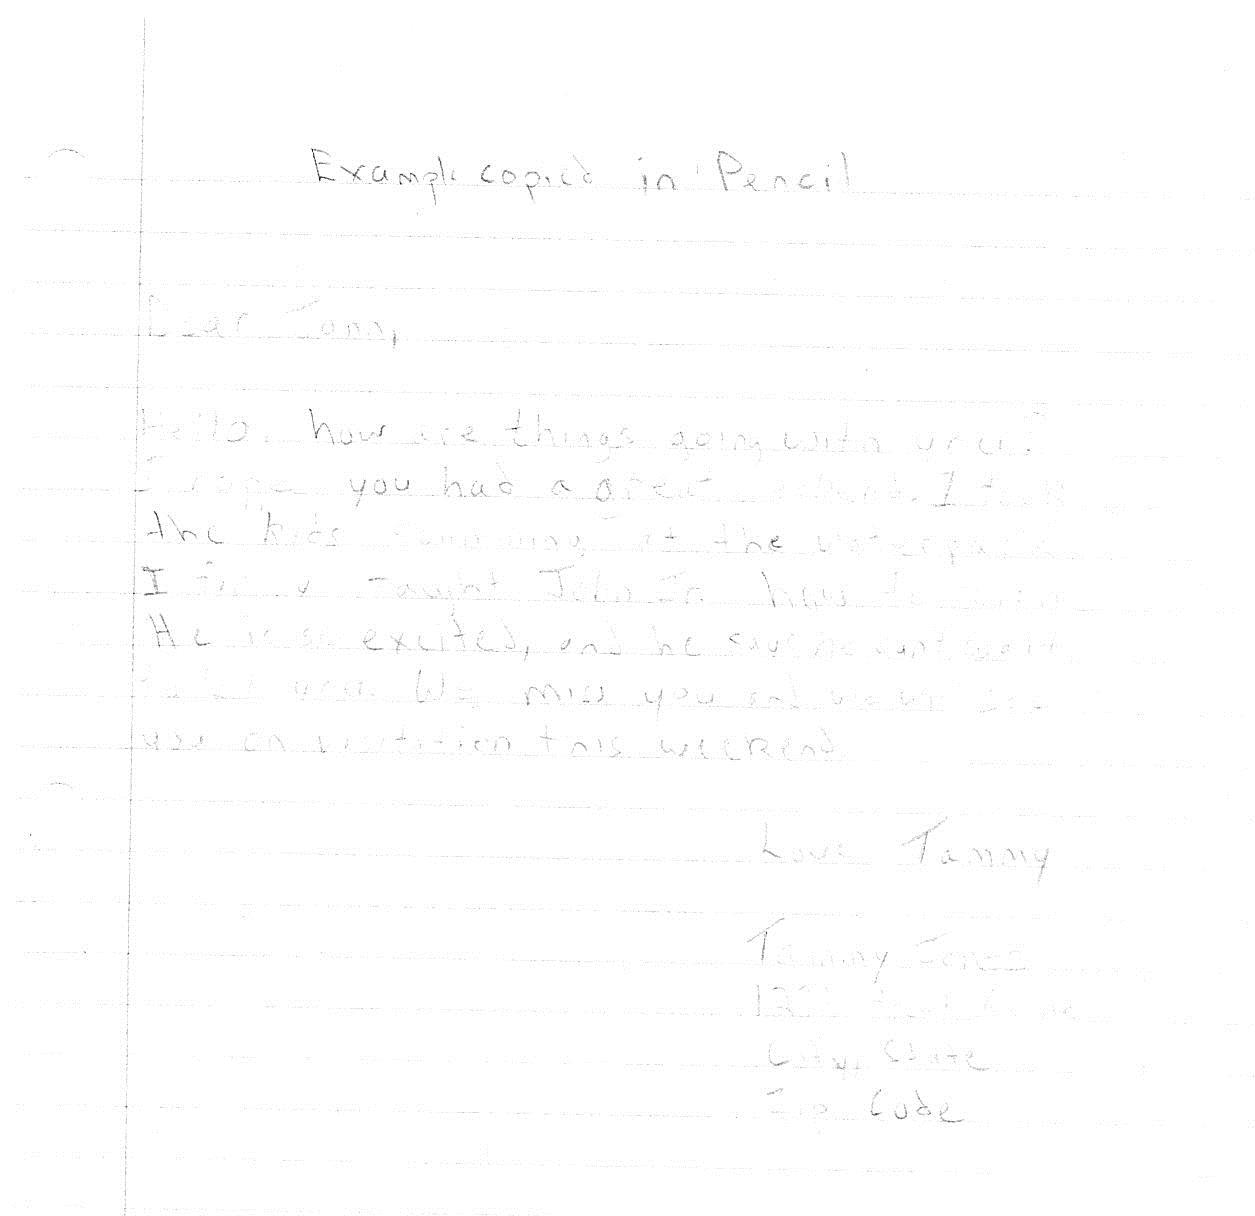 Example copied in Pencil
Dear
Hello, how are things going with you?
I hope you had a great I
the kids swimming at the waterpark
I taught John Jr. how to
He is so excited, and he says he cant wait
you. We miss you and
you on this weekend
Love Tammy
Tammy Jones
City, State
Zip Code